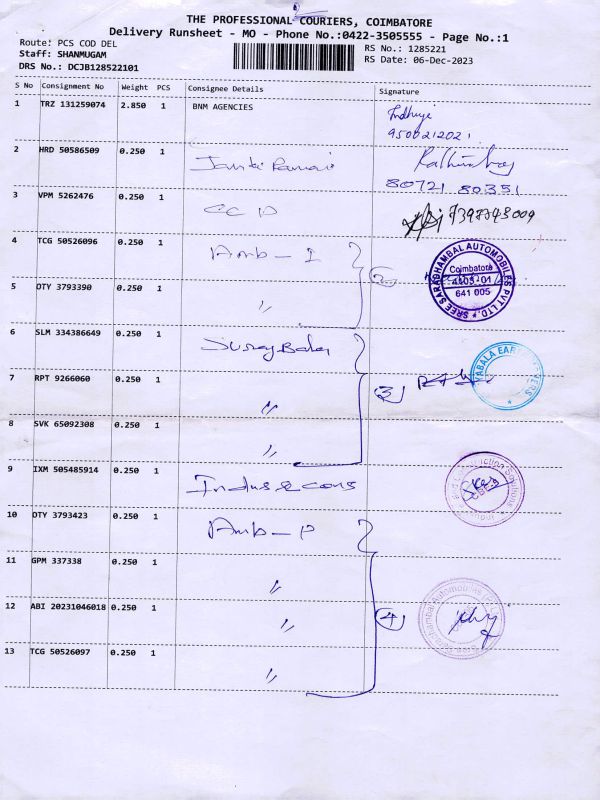 THE PROFESSIONAL COURIERS, COIMBATORE
Delivery Runsheet - MO - Phone No.:0422-3505555 - Page No.:1
Route: PCS COD DEL
RS No.: 1285221
Staff: SHANMUGAM
RS Date: 06-Dec-2023
DRS No.: DCJB128522101
S No Consignment No Weight PCS Consignee Details Signature
1 TRZ 131259074 2.850 1 BNM AGENCIES
2 HRD 50586509 0.250 1
80721 80351
3 VPM 5262476 0.250 1
4 TCG 50526096 0.250 1 Amb - 1
2
SREE SARADHAMBAL AUTOMOBILES PVT LTD.
Coimbatore
641 005
5 OTY 3793390 0.250 1 "
6 SLM 334386649 0.250 1
7 RPT 9266060 0.250 1 "
3
8 SVK 65092308 0.250 1 "
9 IXM 505485914 0.250 1 Indus & cons
10 OTY 3793423 0.250 1
11 GPM 337338 0.250 1 "
12 ABI 20231046018 0.250 1 "
4
13 TCG 50526097 0.250 1 "